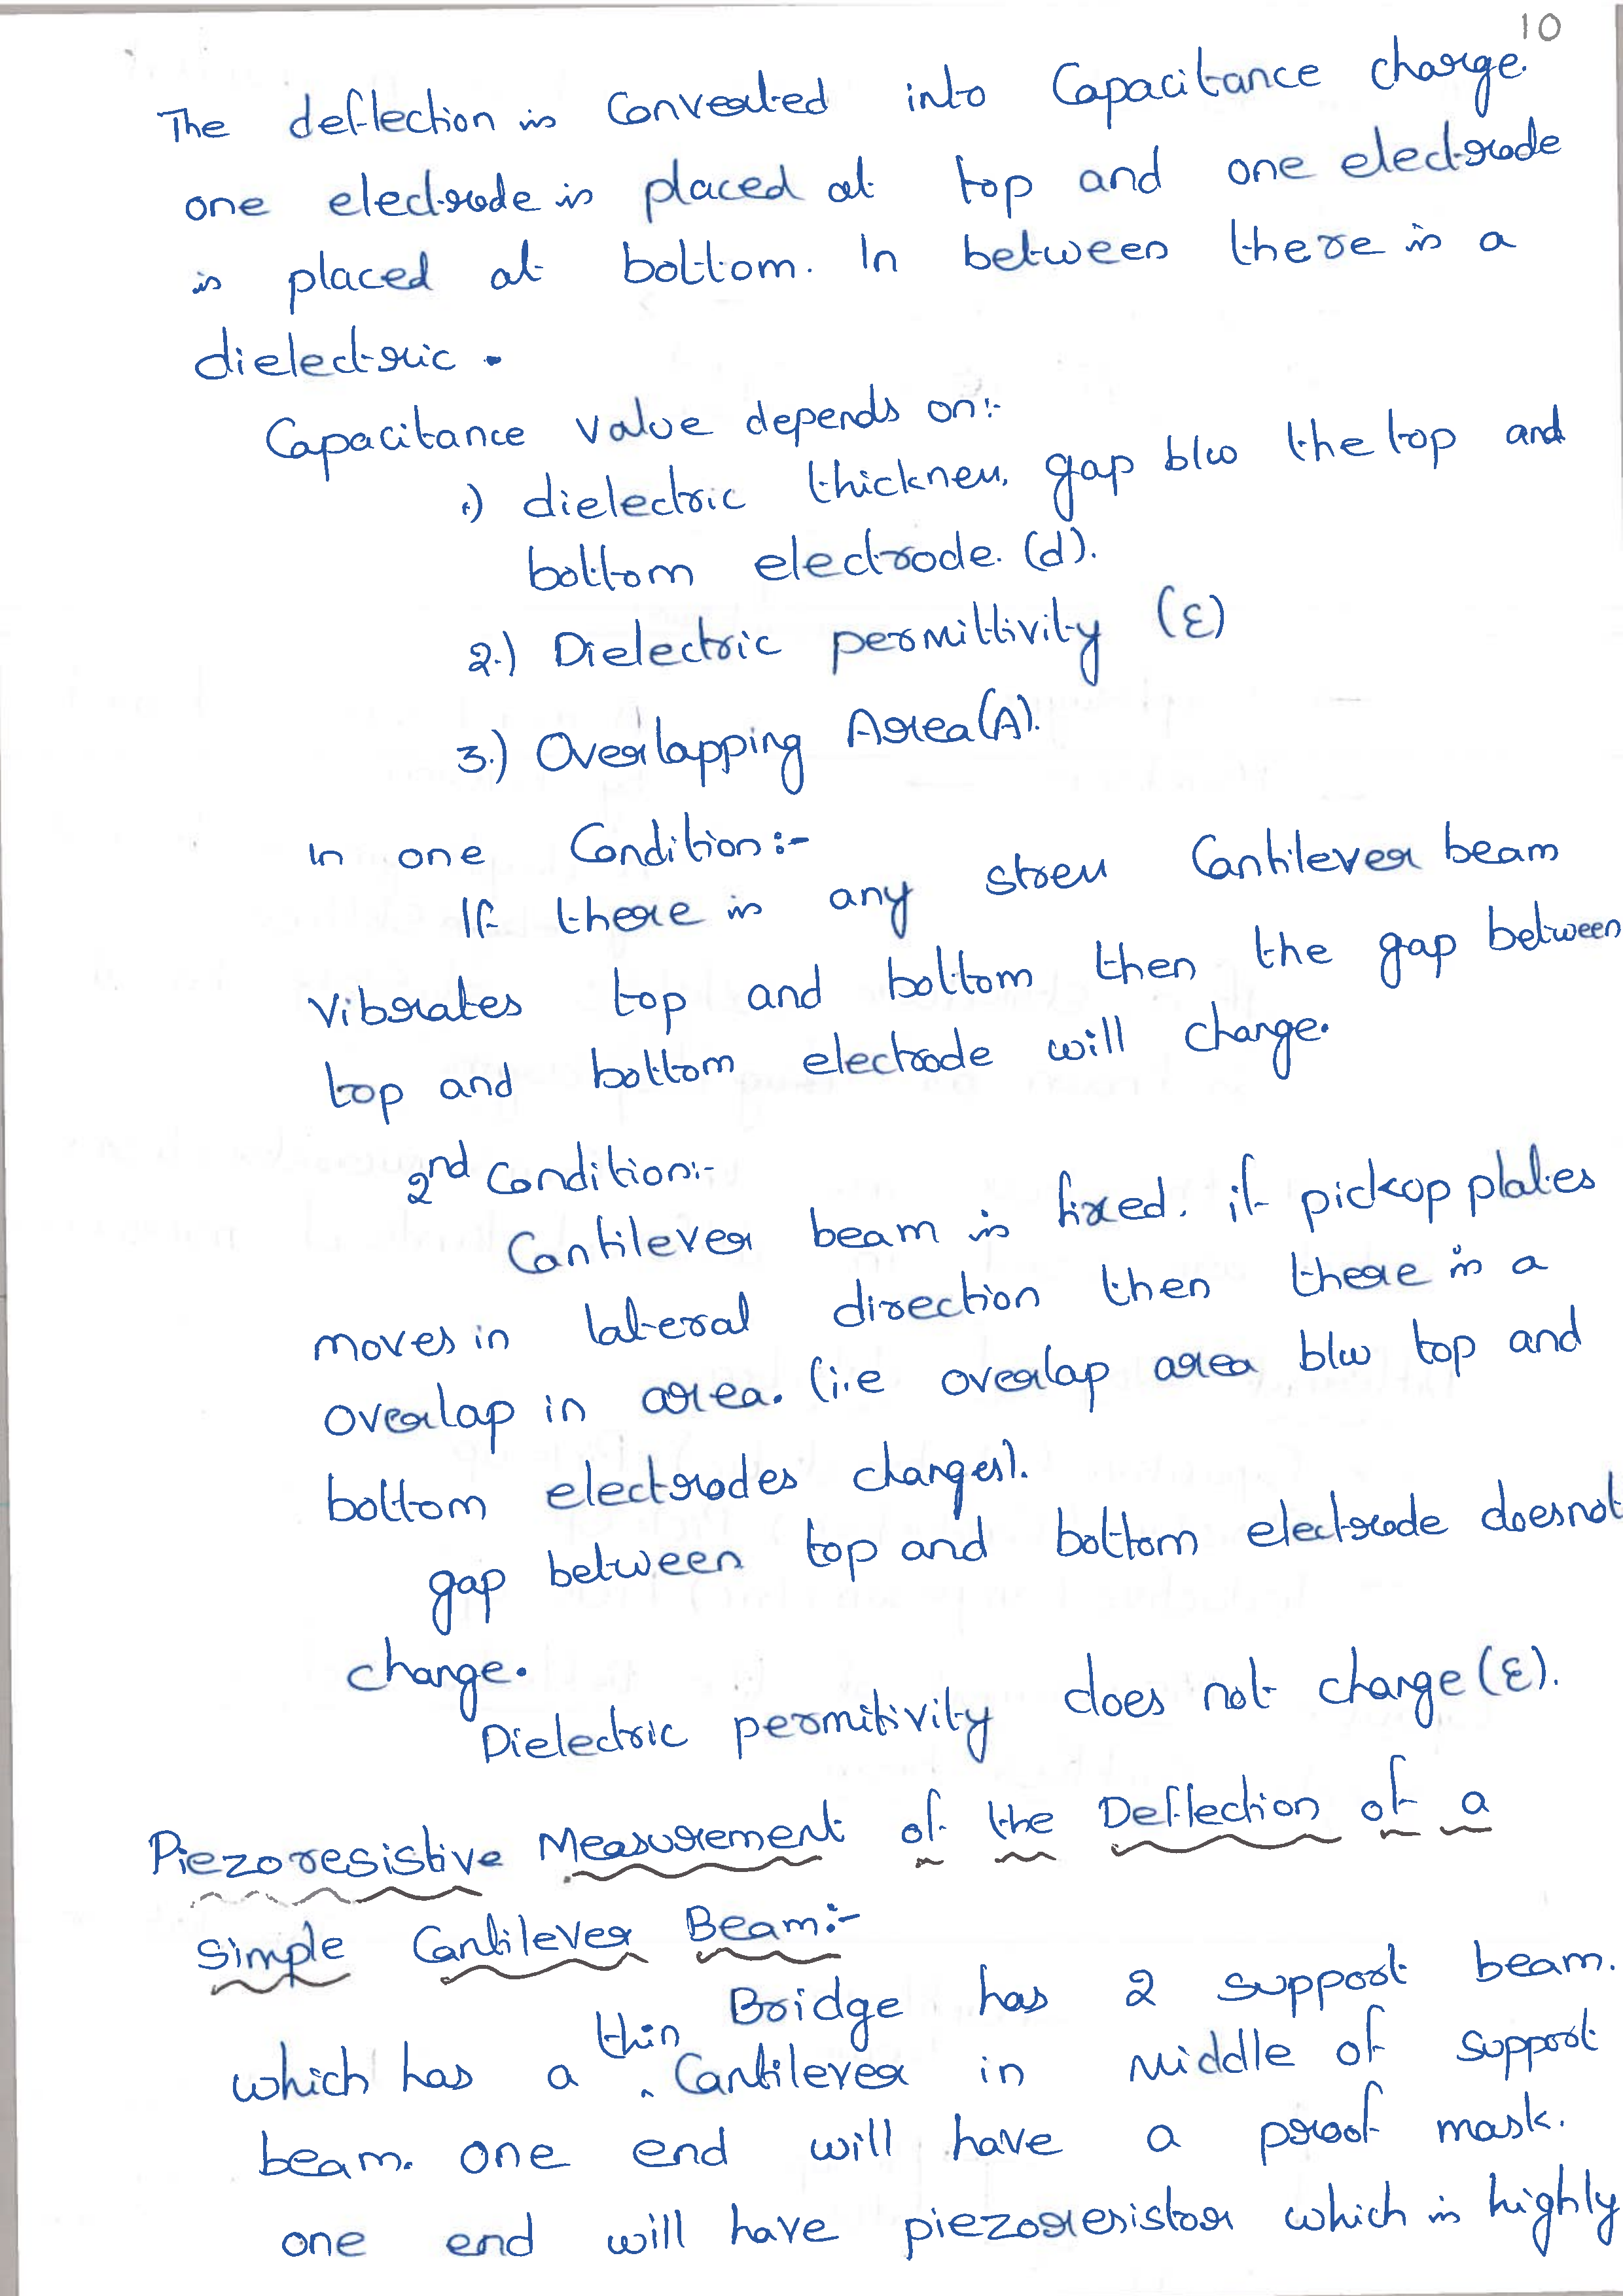 10
The deflection is Converted into Capacitance charge.
one electrode is placed at top and one electrode
is placed at bottom. In between there is a
dielectric.
Capacitance value depends on:-
1.) dielectric thickness, gap b/w the top and
bottom electrode. (d).
2.) Dielectric permittivity (ε)
3.) Overlapping Area(A).
In one Condition:-
If there is any stress Cantilever beam
Vibrates top and bottom then the gap between
top and bottom electrode will change.
2nd Condition:-
Cantilever beam is fixed. if pickop plates
moves in lateral direction then there is a
overlap in area. (i.e overlap area b/w top and
bottom electrodes changes).
gap between top and bottom electrode doesnot
change.
Dielectric permitivity does not change (ε).
Piezoresistive Measurement of the Deflection of a
Simple Cantilever Beam:-
Bridge has 2 support beam.
which has a thin Cantilever in middle of support
beam. one end will have a proof mask.
one end will have piezoresistor which is highly